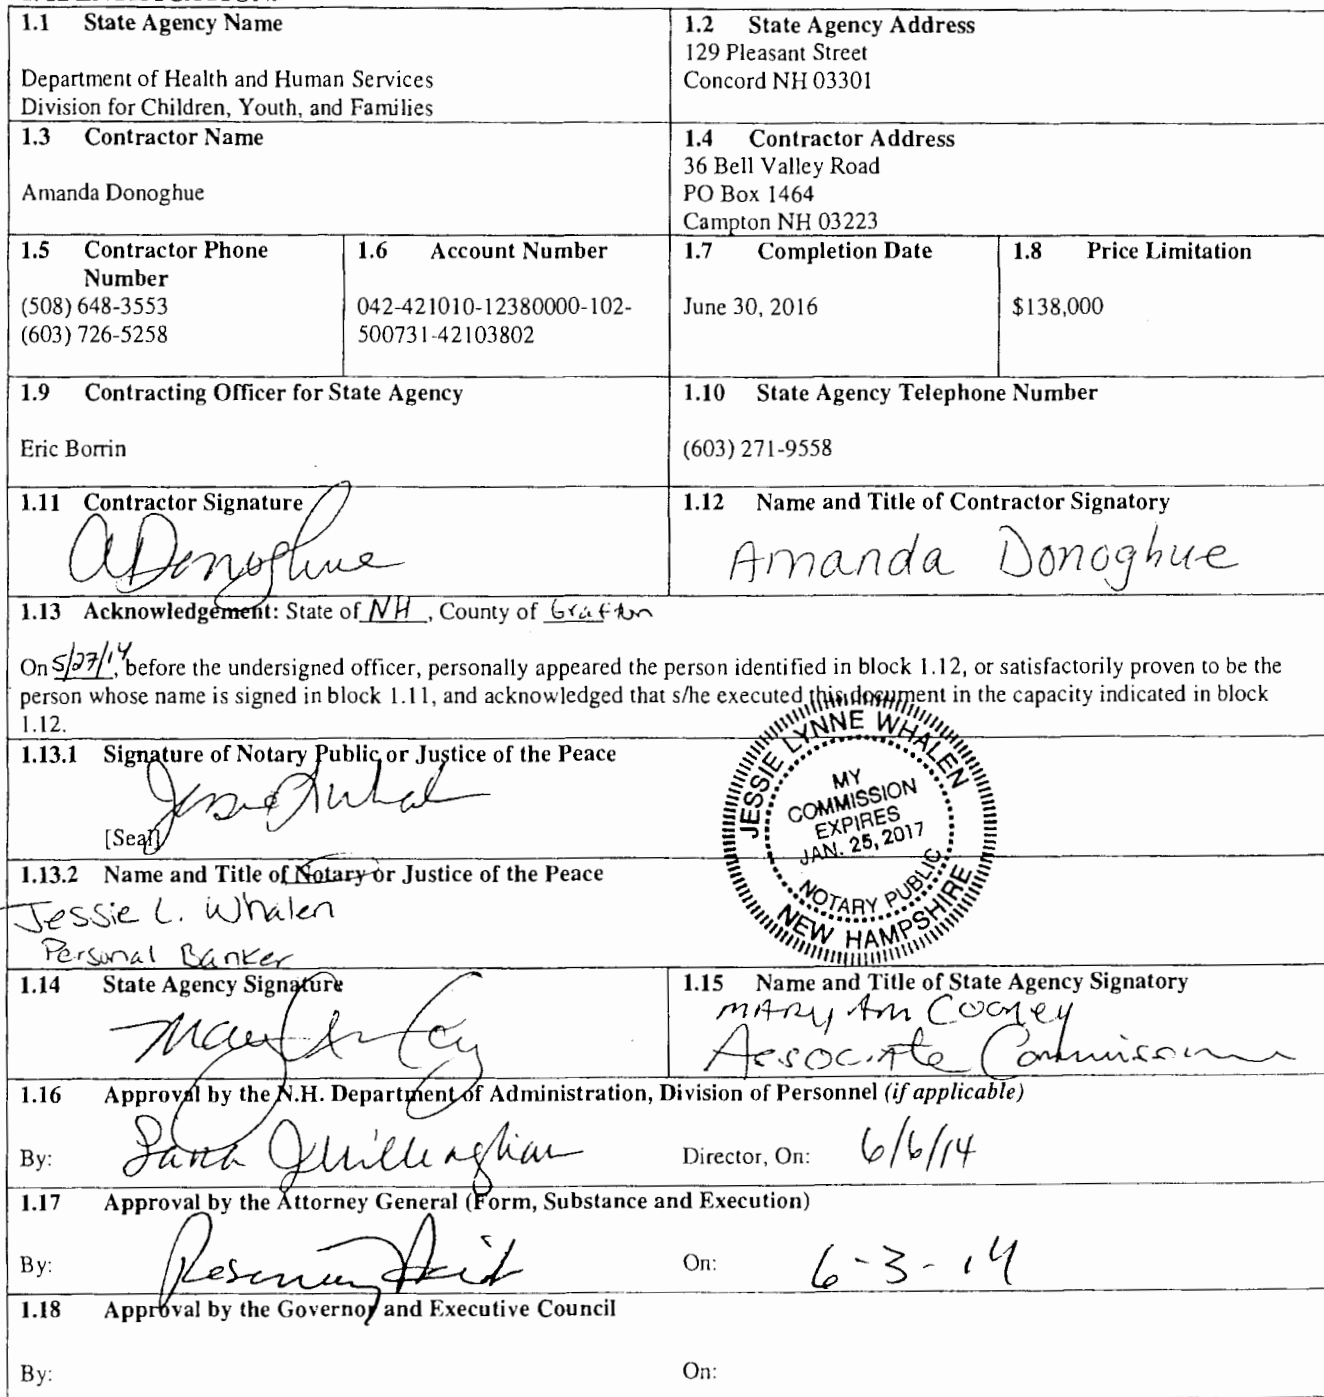 1.1 State Agency Name
Department of Health and Human Services
Division for Children, Youth, and Families
1.2 State Agency Address
129 Pleasant Street
Concord NH 03301
1.3 Contractor Name
Amanda Donoghue
1.4 Contractor Address
36 Bell Valley Road
PO Box 1464
Campton NH 03223
1.5 Contractor Phone
Number
(508) 648-3553
(603) 726-5258
1.6 Account Number
042-421010-12380000-102-
500731-42103802
1.7 Completion Date
June 30, 2016
1.8 Price Limitation
$138,000
1.9 Contracting Officer for State Agency
Eric Borrin
1.10 State Agency Telephone Number
(603) 271-9558
1.11 Contractor Signature
ADonoghue
1.12 Name and Title of Contractor Signatory
Amanda Donoghue
1.13 Acknowledgement: State of NH, County of Grafton
On 5/27/14, before the undersigned officer, personally appeared the person identified in block 1.12, or satisfactorily proven to be the
person whose name is signed in block 1.11, and acknowledged that s/he executed this document in the capacity indicated in block
1.12.
1.13.1 Signature of Notary Public or Justice of the Peace
[Seal]
JESSIE LYNNE WHALEN
MY
COMMISSION
EXPIRES
JAN. 25, 2017
NOTARY PUBLIC
NEW HAMPSHIRE
1.13.2 Name and Title of Notary or Justice of the Peace
Jessie L. Whalen
Personal Banker
1.14 State Agency Signature
1.15 Name and Title of State Agency Signatory
Mary Ann Cooney
Associate Commissioner
1.16 Approval by the N.H. Department of Administration, Division of Personnel (if applicable)
By:
Director, On: 6/6/14
1.17 Approval by the Attorney General (Form, Substance and Execution)
By: Rosemary
On: 6-3-14
1.18 Approval by the Governor and Executive Council
By:
On: